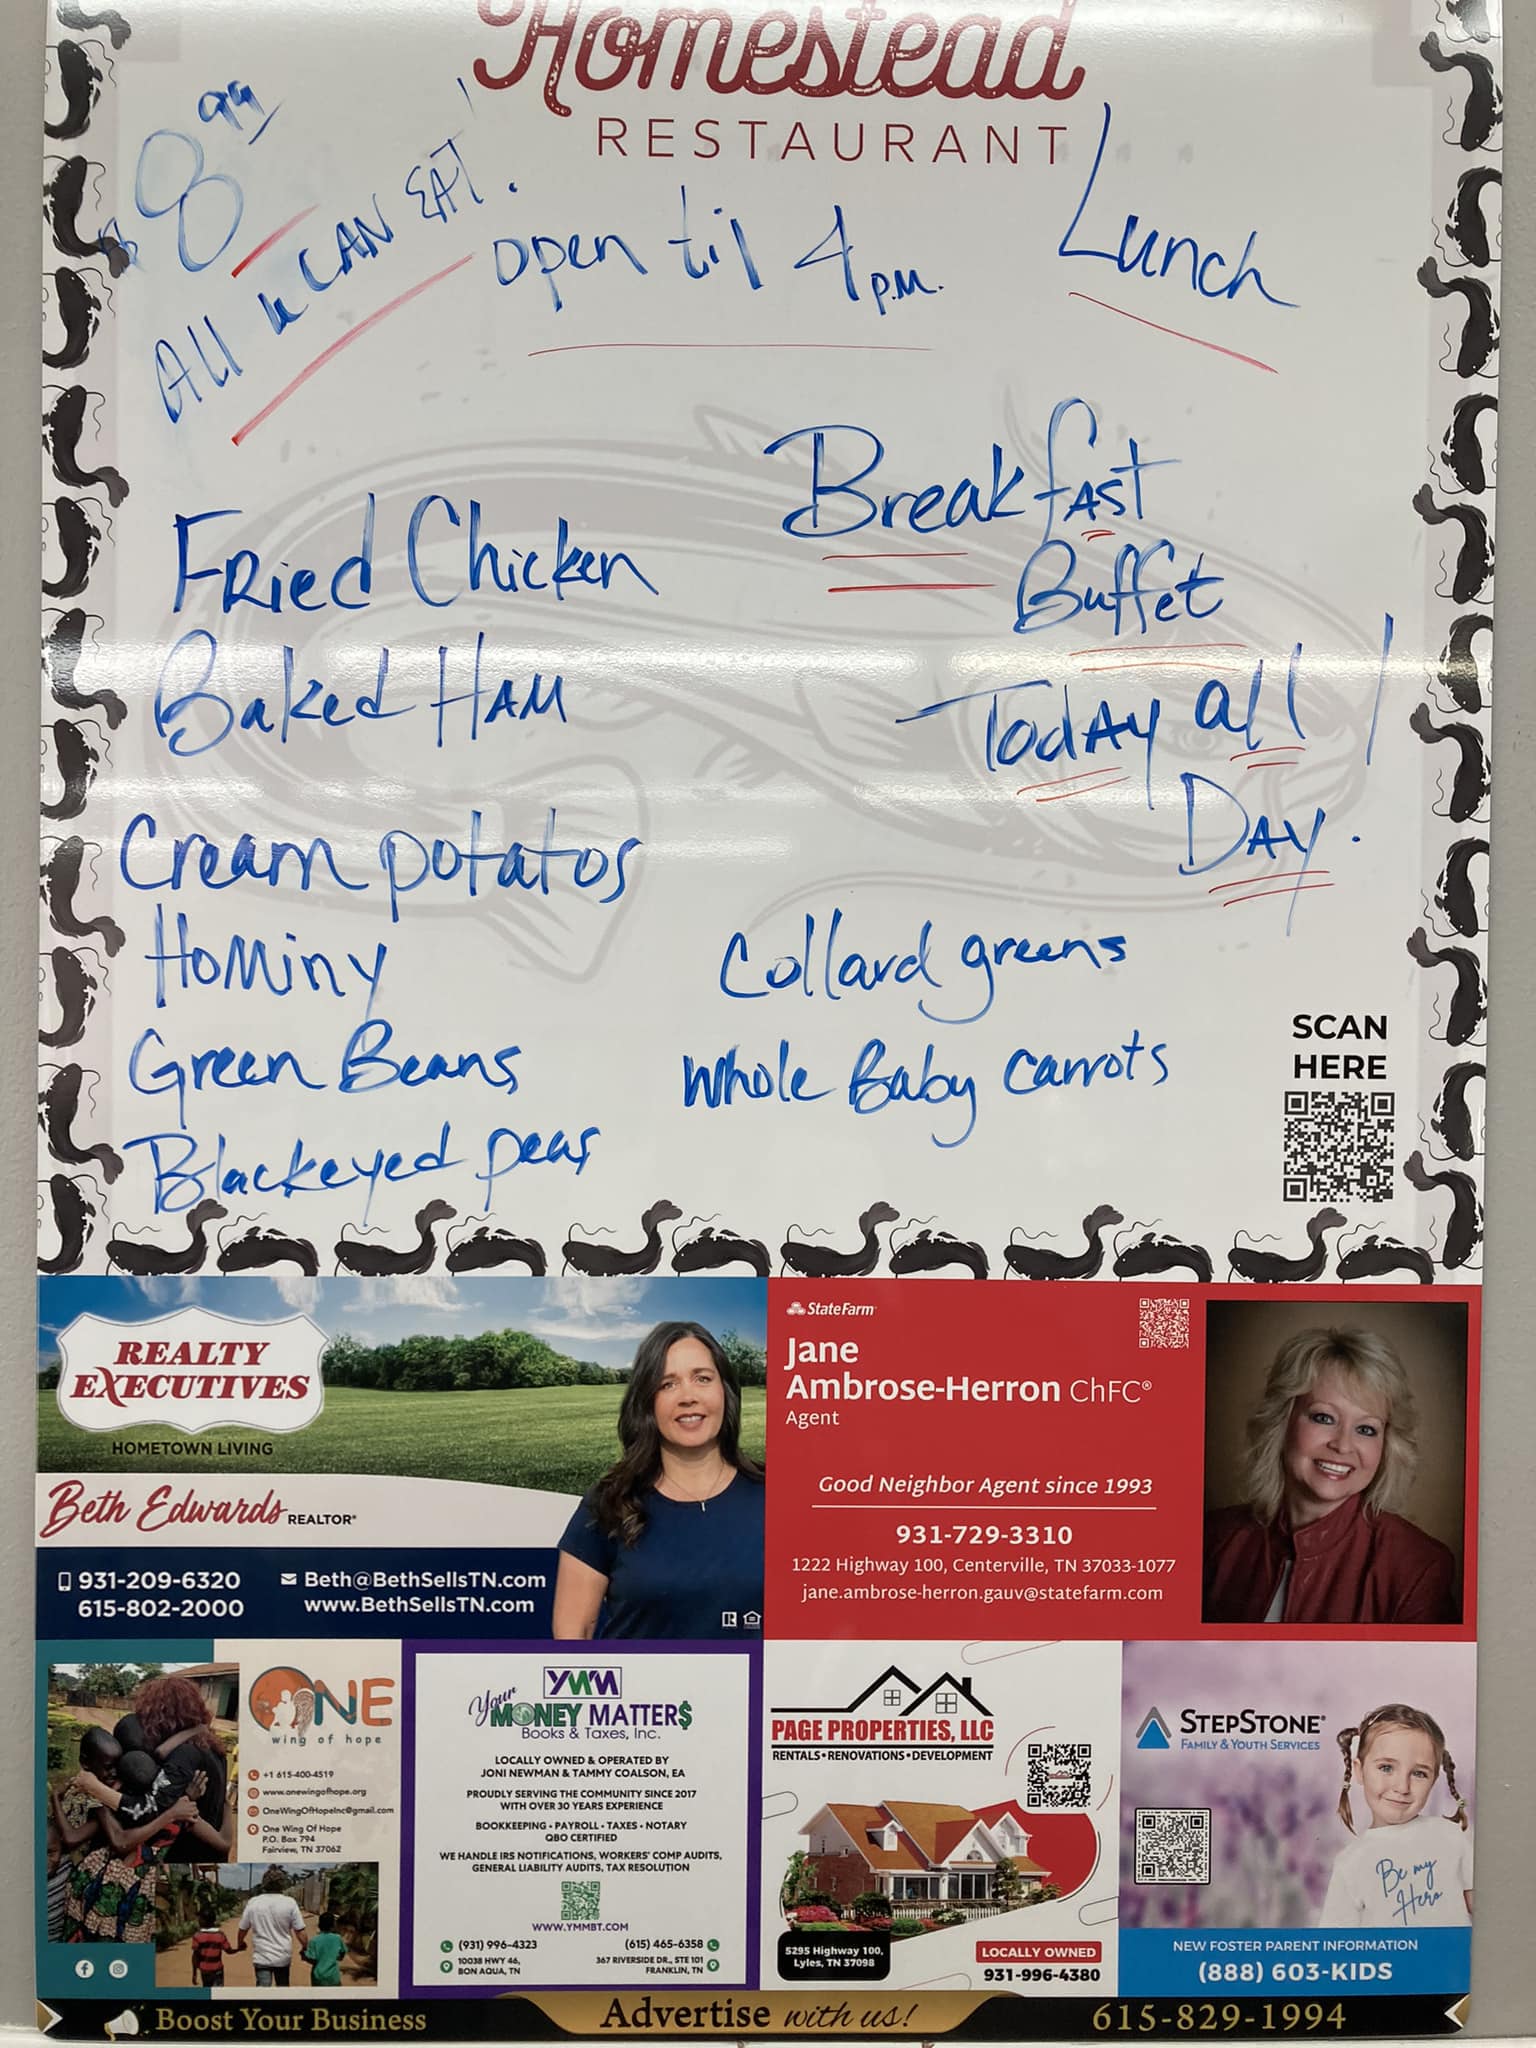 Homestead
RESTAURANT
$8.99
All u CAN EAT!
open til 4 p.m.
Lunch
Breakfast
Buffet
Today all
Day.
Fried Chicken
Baked HAM
Cream potatos
Hominy
Green Beans
Blackeyed peas
Collard greens
Whole Baby carrots
SCAN
HERE
REALTY
EXECUTIVES
HOMETOWN LIVING
Beth Edwards REALTOR®
931-209-6320
615-802-2000
Beth@BethSellsTN.com
www.BethSellsTN.com
StateFarm
Jane
Ambrose-Herron ChFC®
Agent
Good Neighbor Agent since 1993
931-729-3310
1222 Highway 100, Centerville, TN 37033-1077
jane.ambrose-herron.gauv@statefarm.com
ONE
wing of hope
+1 615-400-4519
www.onewingofhope.org
OneWingOfHopeInc@gmail.com
One Wing Of Hope
P.O. Box 794
Fairview, TN 37062
YMM
Your
MONEY MATTER$
Books & Taxes, Inc.
LOCALLY OWNED & OPERATED BY
JONI NEWMAN & TAMMY COALSON, EA
PROUDLY SERVING THE COMMUNITY SINCE 2017
WITH OVER 30 YEARS EXPERIENCE
BOOKKEEPING • PAYROLL • TAXES • NOTARY
QBO CERTIFIED
WE HANDLE IRS NOTIFICATIONS, WORKERS' COMP AUDITS,
GENERAL LIABILITY AUDITS, TAX RESOLUTION
WWW.YMMBT.COM
(931) 996-4323
10038 HWY 46,
BON AQUA, TN
(615) 465-6358
367 RIVERSIDE DR., STE 101
FRANKLIN, TN
PAGE PROPERTIES, LLC
RENTALS • RENOVATIONS • DEVELOPMENT
5295 Highway 100,
Lyles, TN 37098
LOCALLY OWNED
931-996-4380
STEPSTONE®
FAMILY & YOUTH SERVICES
Be my
Hero
NEW FOSTER PARENT INFORMATION
(888) 603-KIDS
Boost Your Business
Advertise with us!
615-829-1994